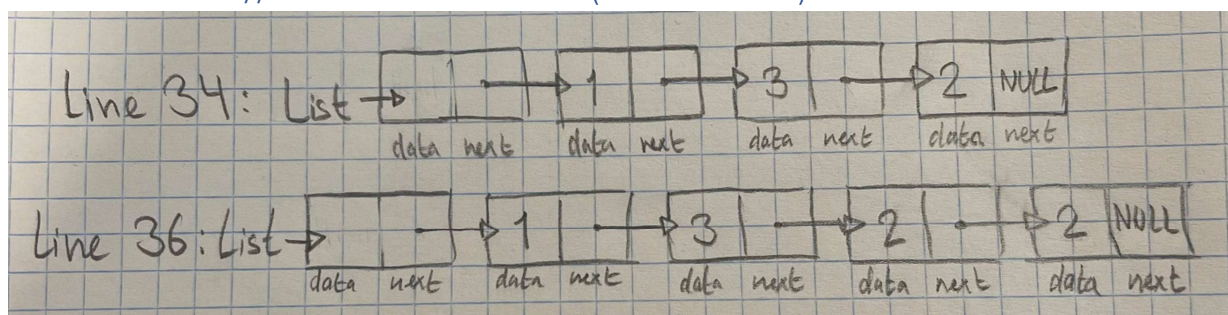 Line 34: List 1 3 2 NULL
data next data next data next data next
Line 36: List 1 3 2 2 NULL
data next data next data next data next data next